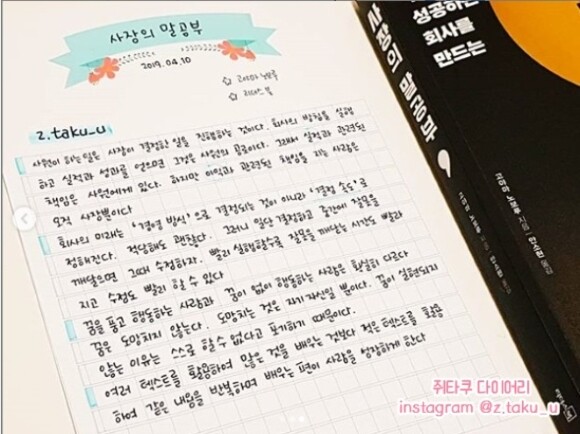 사장의 말공부
2019.04.10
☆ 고야마 노보루
☆ 리더스북
z.taku_u
사원이 하는일은 사장이 결정한 일을 진행하는 것이다. 회사의 방침을 실행
하고 실적과 성과를 얻으면 그것은 사원의 공로이다. 그래서 실적과 관련된
책임은 사원에게 있다. 하지만 이익과 관련된 책임을 지는 사람은
오직 사장뿐이다
회사의 미래는 '경영 방식'으로 결정되는 것이 아니라 '결정 속도'로
정해진다. 적당해도 괜찮다. 그러니 일단 결정하고 중간에 잘못을
깨달으면 그때 수정하자. 빨리 실행할수록 잘못을 깨닫는 시간도 빨라
지고 수정도 빨리 할 수 있다
꿈을 품고 행동하는 사람과 꿈이 없이 행동하는 사람은 확실히 다르다
꿈은 도망치지 않는다. 도망치는 것은 자기 자신일 뿐이다. 꿈이 실현되지
않는 이유는 스스로 할 수 없다고 포기하기 때문이다.
여러 텍스트를 활용하여 많은 것을 배우는 것보다 적은 텍스트를 활용
하여 같은 내용을 반복하며 배우는 편이 사람을 성장하게 한다
성공하는
회사를
만드는
사장의 말공부
고야마 노보루 지음
쥐타쿠 다이어리
instagram @z.taku_u